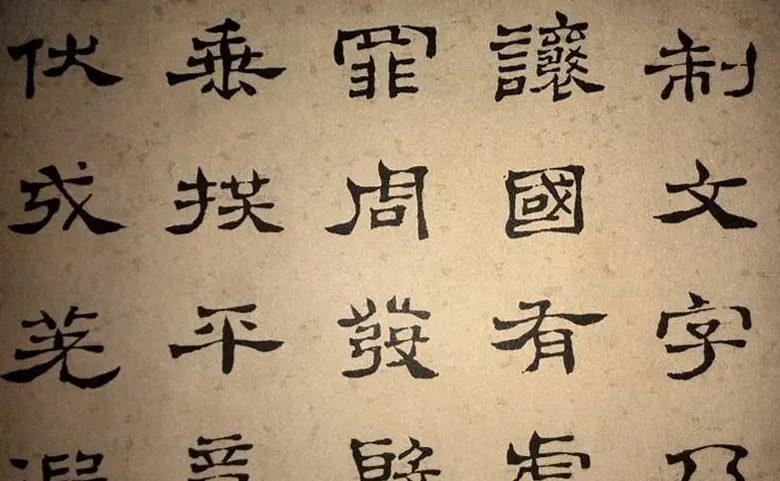 制文字乃
讓國有虞
罪周發殷
垂拱平章
伏戎羌遐